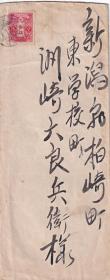 新潟県柏崎町
東学校町
洲崎大良兵衛様